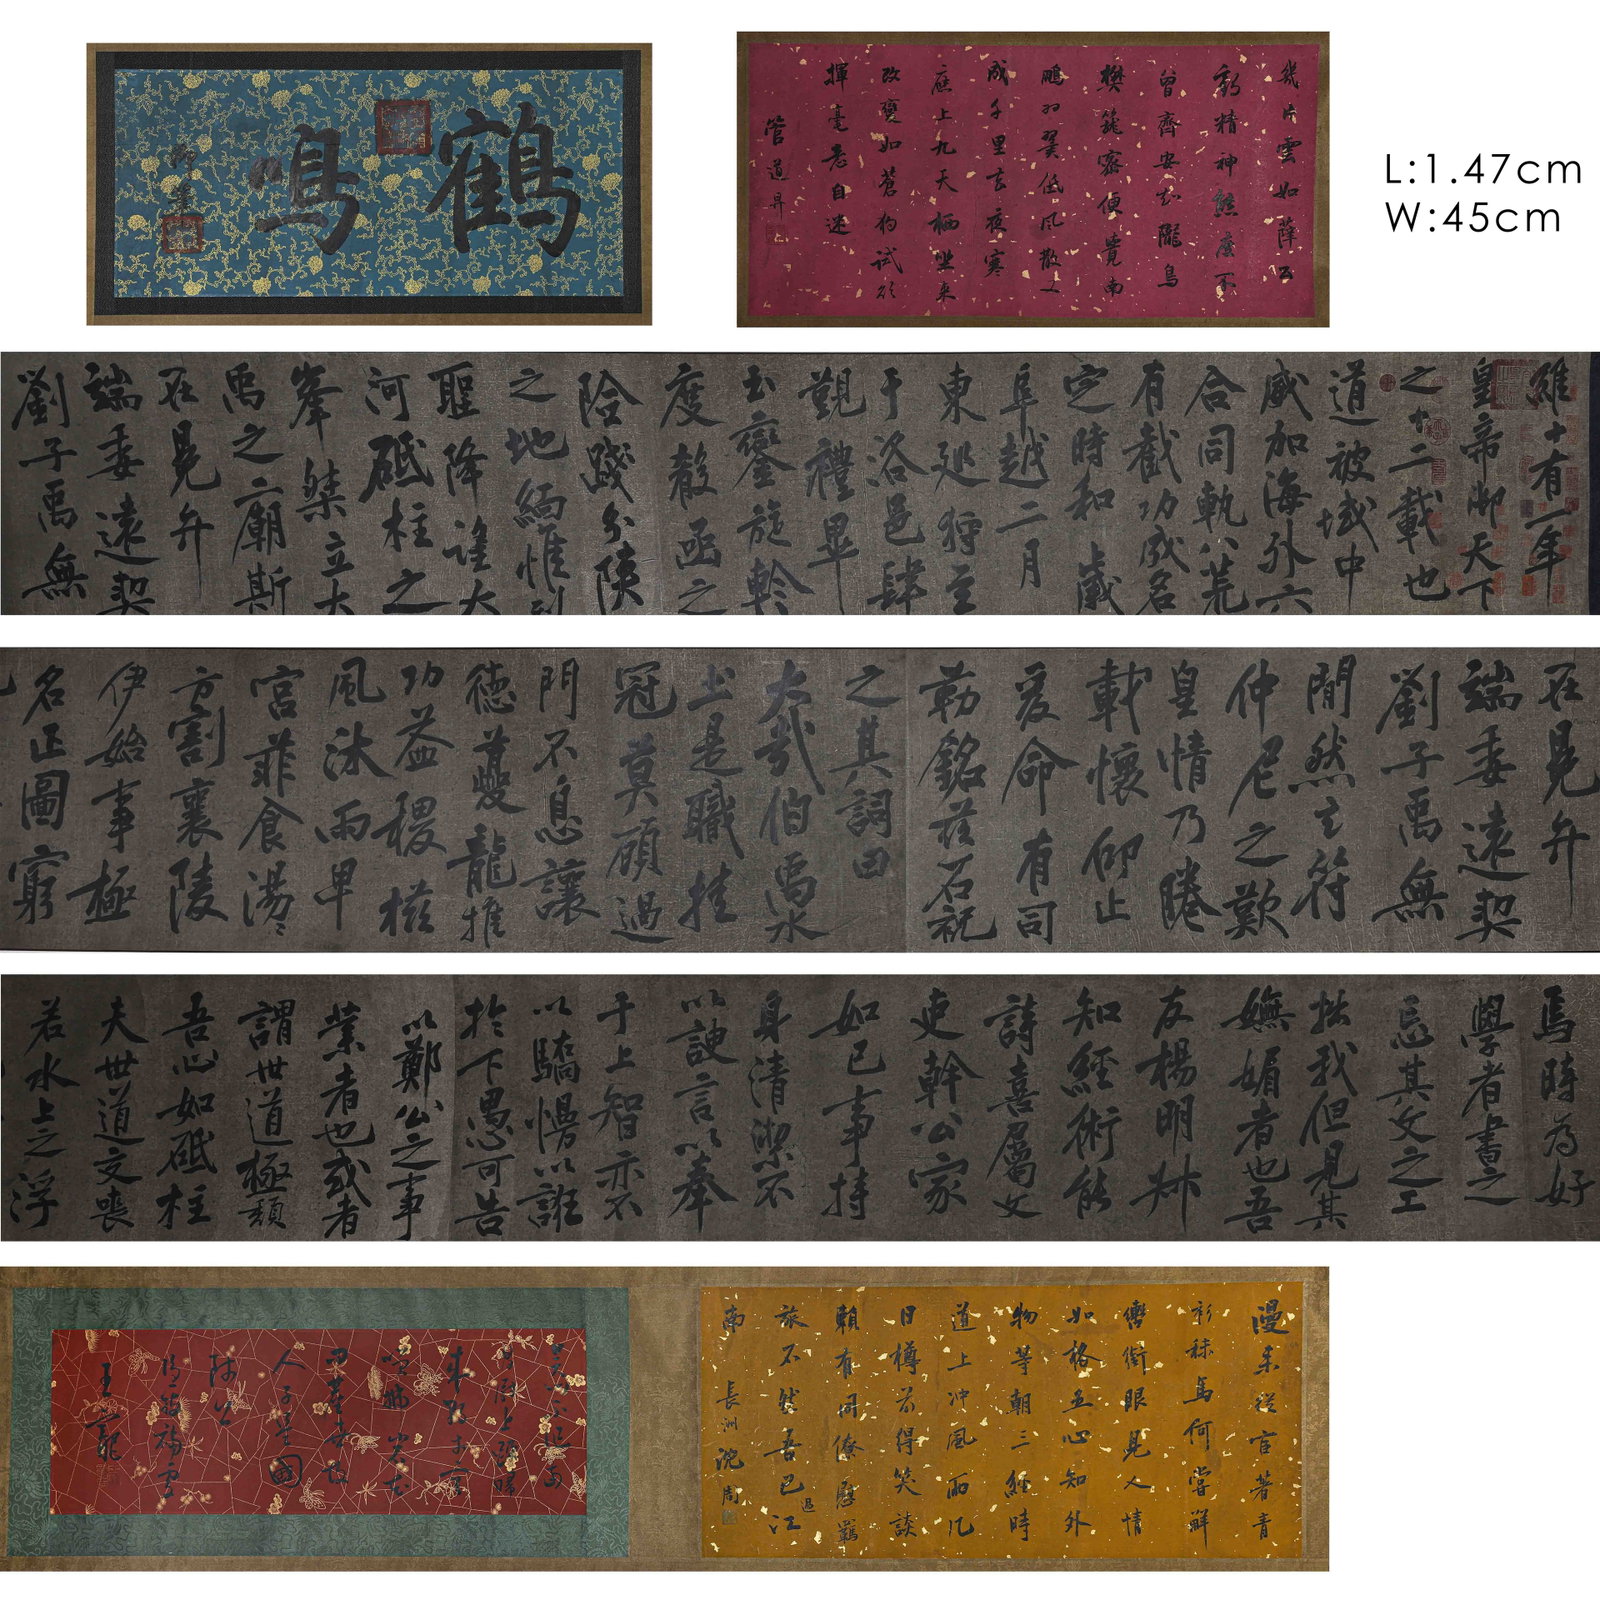 鶴鳴
御筆
幾片雲如薛公
彩精神態度不
曾齊安知隴鳥
樊籠密便覺南
鵬羽翼低風散
成千里去夜寒
應上九天栖坐來
改變如蒼狗試欲
揮毫意自迷
管道昇
L:1.47cm
W:45cm
維十有一年
皇帝御天下
之十二載也
道被域中
威加海外六
合同軌八荒
有截功成名
定時和歲
阜越二月
東巡狩至
于洛邑肆
覲禮畢
玉鑾旋軫
度殽函之
險踐分陝
之地緬惟列
聖降謠大
河砥柱之
峯桀立大
禹之廟斯
在晃弁
端委遠契
劉子禹無
在晃弁
端委遠契
劉子禹無
間然之符
仲尼之歎
皇情乃睠
載懷仰止
爰命有司
勒銘茲石祝
之其詞曰
大哉伯禹水
土是職挂
冠莫顧過
門不息讓
德夔龍推
功益稷櫛
風沐雨卑
宮菲食湯湯
方割襄陵
伊始事極
名正圖窮
焉時為好
學者書之
忘其文之工
拙我但見其
嫵媚者也吾
友楊明叔
知經術能
詩喜屬文
吏幹公家
如已事持
身清潔不
以諛言以奉
于上智亦不
以驕慢以誑
於下愚可告
以鄭公之事
業者也或者
謂世道極頹
吾心如砥柱
夫世道交喪
若水上之浮
王寵
漫來從宦著青
衫秣馬何嘗解
轡銜眼見人情
如格五心知外
物等朝三經時
道上冲風雨几
日樽前得笑談
賴有同僚慰羈
旅不然吾已過江
南 長洲沈周